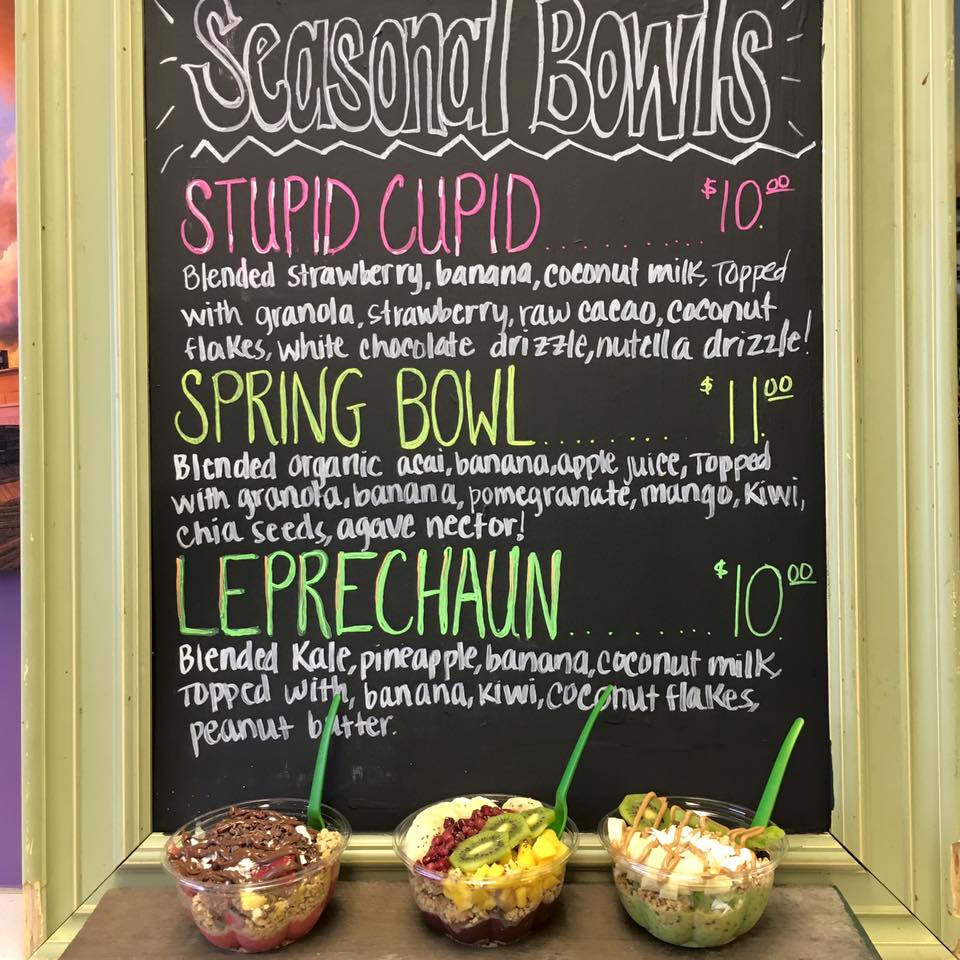 Seasonal Bowls
STUPID CUPID.......... $10.00
Blended strawberry, banana, coconut milk, Topped
with granola, strawberry, raw cacao, coconut
flakes, white chocolate drizzle, nutella drizzle!
SPRING BOWL.......... $11.00
Blended organic acai, banana, apple juice, Topped
with granola, banana, pomegranate, mango, Kiwi,
chia seeds, agave nector!
LEPRECHAUN........ $10.00
Blended Kale, pineapple, banana, coconut milk,
Topped with, banana, kiwi, coconut flakes,
peanut butter.